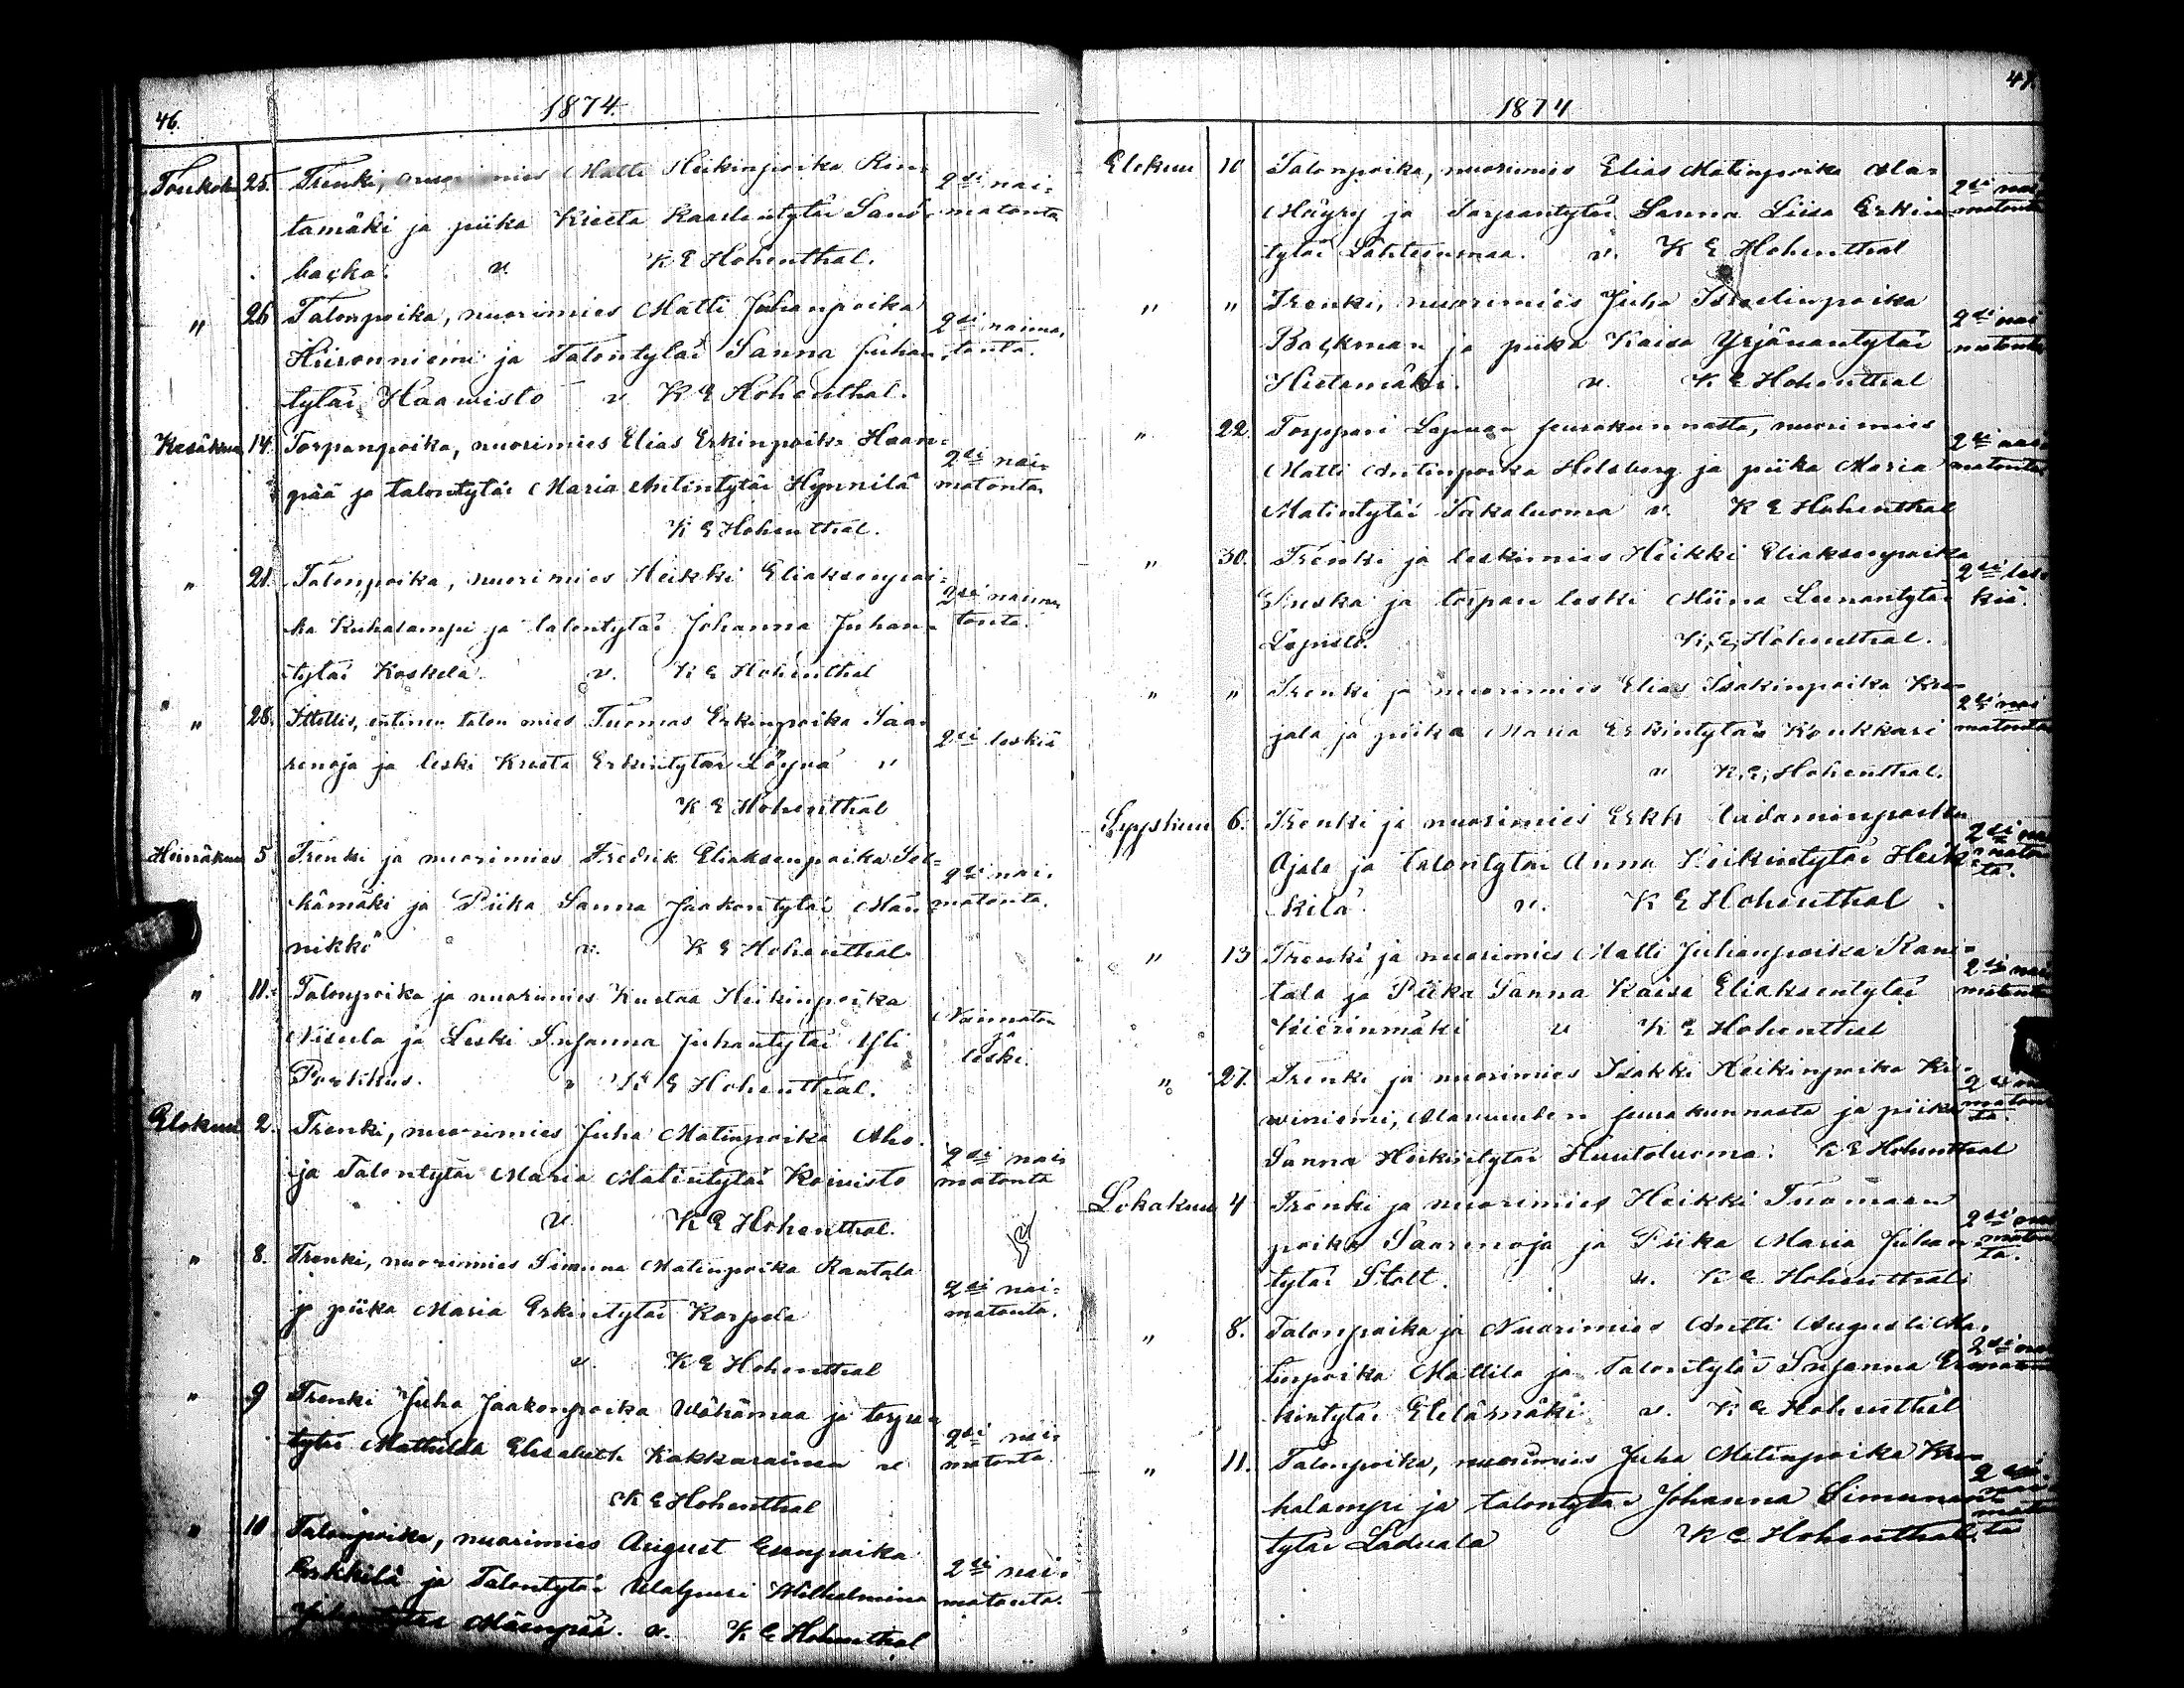 46.
1874.
Toukok. 25. Trenki, nuorimies Matti Heikinpoika Rin-
tamäki ja piika Kreeta Kaarlentytär Sand-
backa. v. K E Hohenthal.
2si nai-
matonta
" 26 Talonpoika, nuorimies Matti Juhanpoika
Hiironniemi ja Talontytär Sanna Juhan
tytär Haawisto v K E Hohenthal.
2si naima-
tonta.
Kesäkuu 14. Torpanpoika, nuorimies Elias Erkinpoika Haan-
pää ja talontytär Maria Antintytär Hynnilä
K E Hohenthal.
2si nai-
matonta
" 21. Talonpoika, nuorimies Heikki Eliaksenpoi-
ka Kuhalampi ja talontytär Johanna Juhan-
tytär Koskela v. K E Hohenthal
2si naima
tonta.
" 28. Ittellis, entinen talon mies Tuomas Erkinpoika Saa-
renoja ja leski Kreeta Erkintytär Löyvä v
K E Hohenthal
2si leskiä
Heinäkuu 5 Trenki ja nuorimies Fredrik Eliaksenpoika Sel-
kämäki ja Piika Sanna Jaakontytär Män-
nikkö v. K E Hohenthal
2si nai-
matonta.
" 11. Talonpoika ja nuorimies Kustaa Heikinpoika
Nisula ja Leski Susanna Juhantytär Yli
Porkkus. v K E Hohenthal.
Naimaton
ja
leski.
Elokuu 2. Trenki, nuorimies Juha Matinpoika Aho.
ja Talontytär Maria Matintytär Koiwisto
v. K E Hohenthal.
2si nai-
matonta
" 8. Trenki, nuorimies Simuna Matinpoika Rantala
ja piika Maria Erkintytär Karpela
v. K E Hohenthal
2si nai-
matonta.
" 9 Trenki Juha Jaakonpoika Wähämaa ja torpan
tytär Mathilda Elisabeth Kakkarainen v
K E Hohenthal
2si nai-
matonta.
" 10 Talonpoika, nuorimies August Eerenpoika
Erkkilä ja Talontytär Walpuri Wilhelmina
Juhantytär Mäenpää. v. K E Hohenthal
2si nai-
matonta.
47.
1874
Elokuu 10 Talonpoika, nuorimies Elias Matinpoika Ala-
Mäyry ja Torpantytär Sanna Liisa Erkin
tytär Lähteenmaa. v. K E Hohenthal
2si nai
matonta
" " Trenki, nuorimies Juha Israelinpoika
Backman ja piika Kaisa Yrjänäntytär
Hietamäki. v. K E Hohenthal
2si nai
matonta
" 22. Torppari Lapuan seurakunnasta, nuorimies
Matti Antinpoika Holsberg ja piika Maria
Matintytär Takaluoma v. K E Hohenthal
2si nai
matonta
" 30. Trenki ja leskimies Heikki Eliaksenpoika
Luska ja torpan leski Miina Leenantytär
Lopusto. K, E, Hohenthal.
2si les-
kiä.
" " Trenki ja nuorimies Elias Isakinpoika Kro-
jala ja piika Maria Erkintytär Konkkari
v K, E, Hohenthal.
2si nai
matonta
Syyskuu 6. Trenki ja nuorimies Erkki Aadaminpoika
Ojala ja talontytär Anna Heikintytär Heik-
kilä. v. K E Hohenthal
2si nai
maton
ta.
" 13 Trenki ja nuorimies Matti Juhanpoika Ran-
tala ja Piika Sanna Kaisa Eliaksentytär
Kiërinmäki v K E Hohenthal
2si nai
matonta
" 27. Trenki ja nuorimies Isakki Heikinpoika Ki-
winiemi, Alawuuden seurakunnasta ja piika
Sanna Heikintytär Huutoluoma. K E Hohenthal
2si nai
maton
ta.
Lokakuu 4 Trenki ja nuorimies Heikki Tuomaan
poika Saarenoja ja Piika Maria Juhan
tytär Stolt. v. K E Hohenthal
2si nai
maton
ta.
" 8. Talonpoika ja Nuorimies Antti August Ma-
tinpoika Mattila ja Talontytär Susanna Er-
kintytär Etelämäki v. K E Hohenthal
2si nai
matonta
" 11. Talonpoika, nuorimies Juha Matinpoika Ku-
halampi ja talontytär Johanna Simunan
tytär Laduala K E Hohenthal.
2si
nai
maton
ta